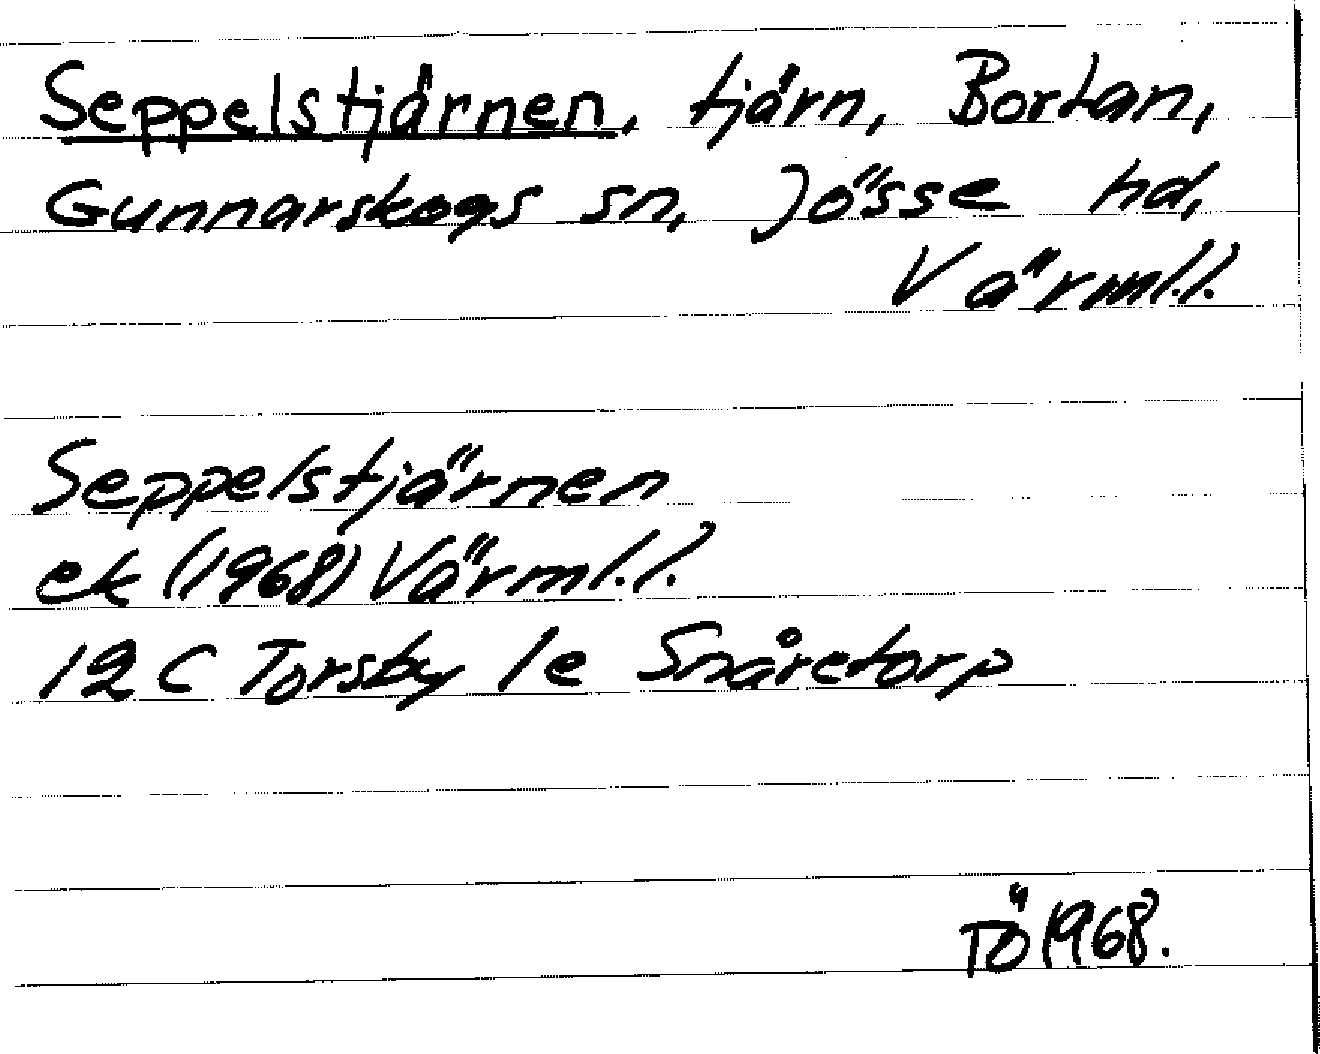 Seppelstjärnen, tjärn, Bortan,
Gunnarskogs sn, Jösse hd,
Värml.l.
Seppelstjärnen
ek (1968) Värml.l.
12 C Torsby 1e Snåretorp
TÖ 1968.